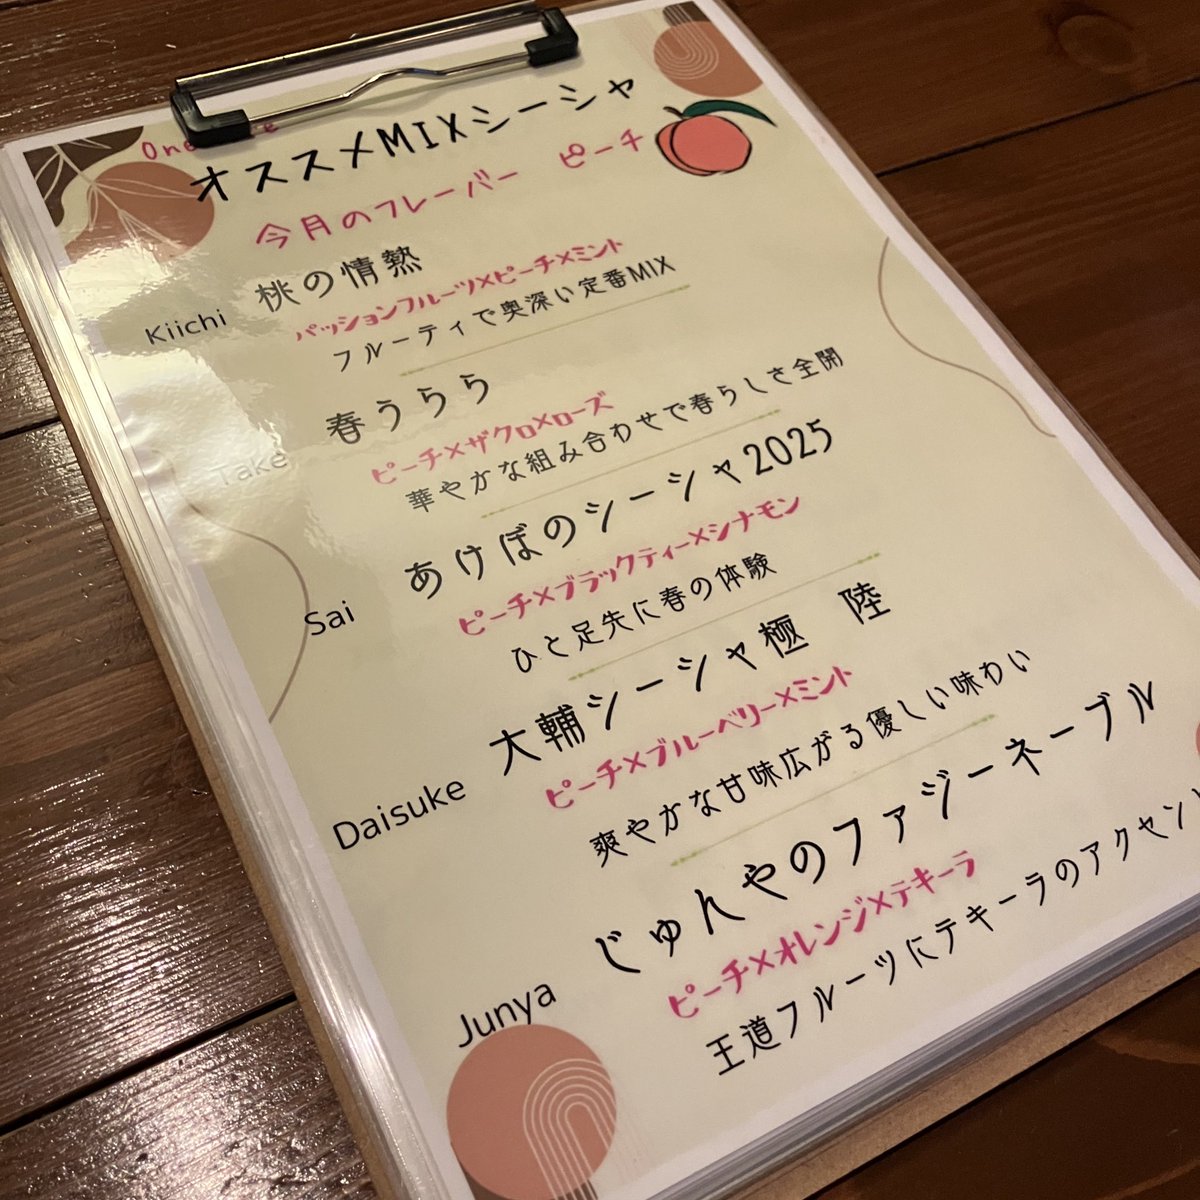 One
オススメMIXシーシャ
今月のフレーバー ピーチ
Kiichi 桃の情熱
パッションフルーツ×ピーチ×ミント
フルーティで奥深い定番MIX
Take 春うらら
ピーチ×ザクロ×ローズ
華やかな組み合わせで春らしさ全開
Sai あけぼのシーシャ2025
ピーチ×ブラックティー×シナモン
ひと足先に春の体験
Daisuke 大輔シーシャ極 陸
ピーチ×ブルーベリー×ミント
爽やかな甘味広がる優しい味わい
Junya じゅんやのファジーネーブル
ピーチ×オレンジ×テキーラ
王道フルーツにテキーラのアクセント